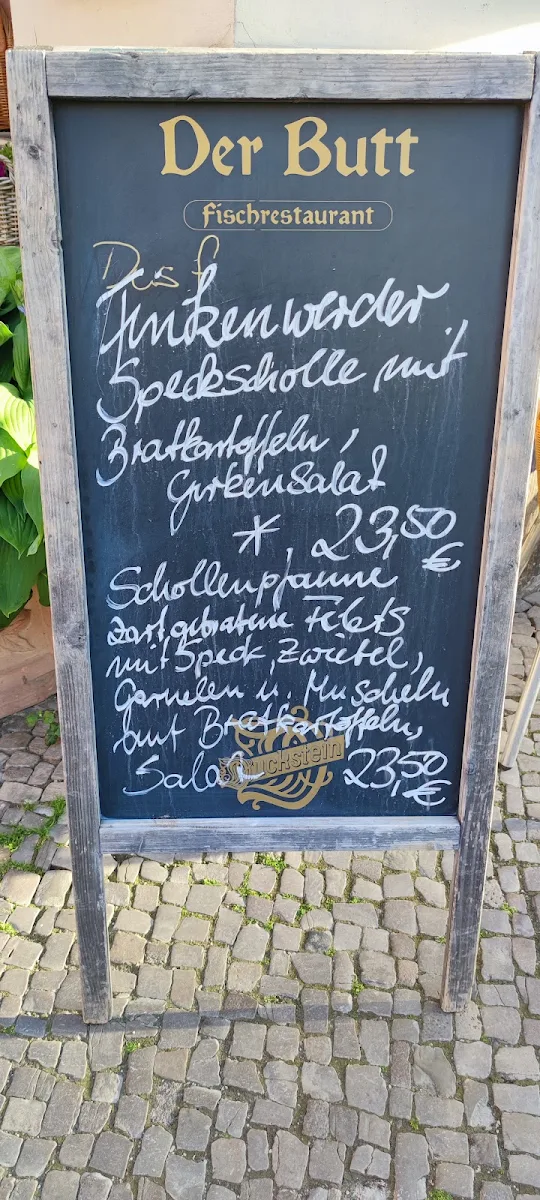 Der Butt
Fischrestaurant
Das f
Finkenwerder
Speckscholle mit
Bratkartoffeln,
Gurkensalat
*, 23,50
€
Schollenpfanne
zart gebratene Filets
mit Speck, Zwiebel,
Garnelen u. Muscheln
mit Bratkartoffeln,
Salat 23,50
€
Duckstein